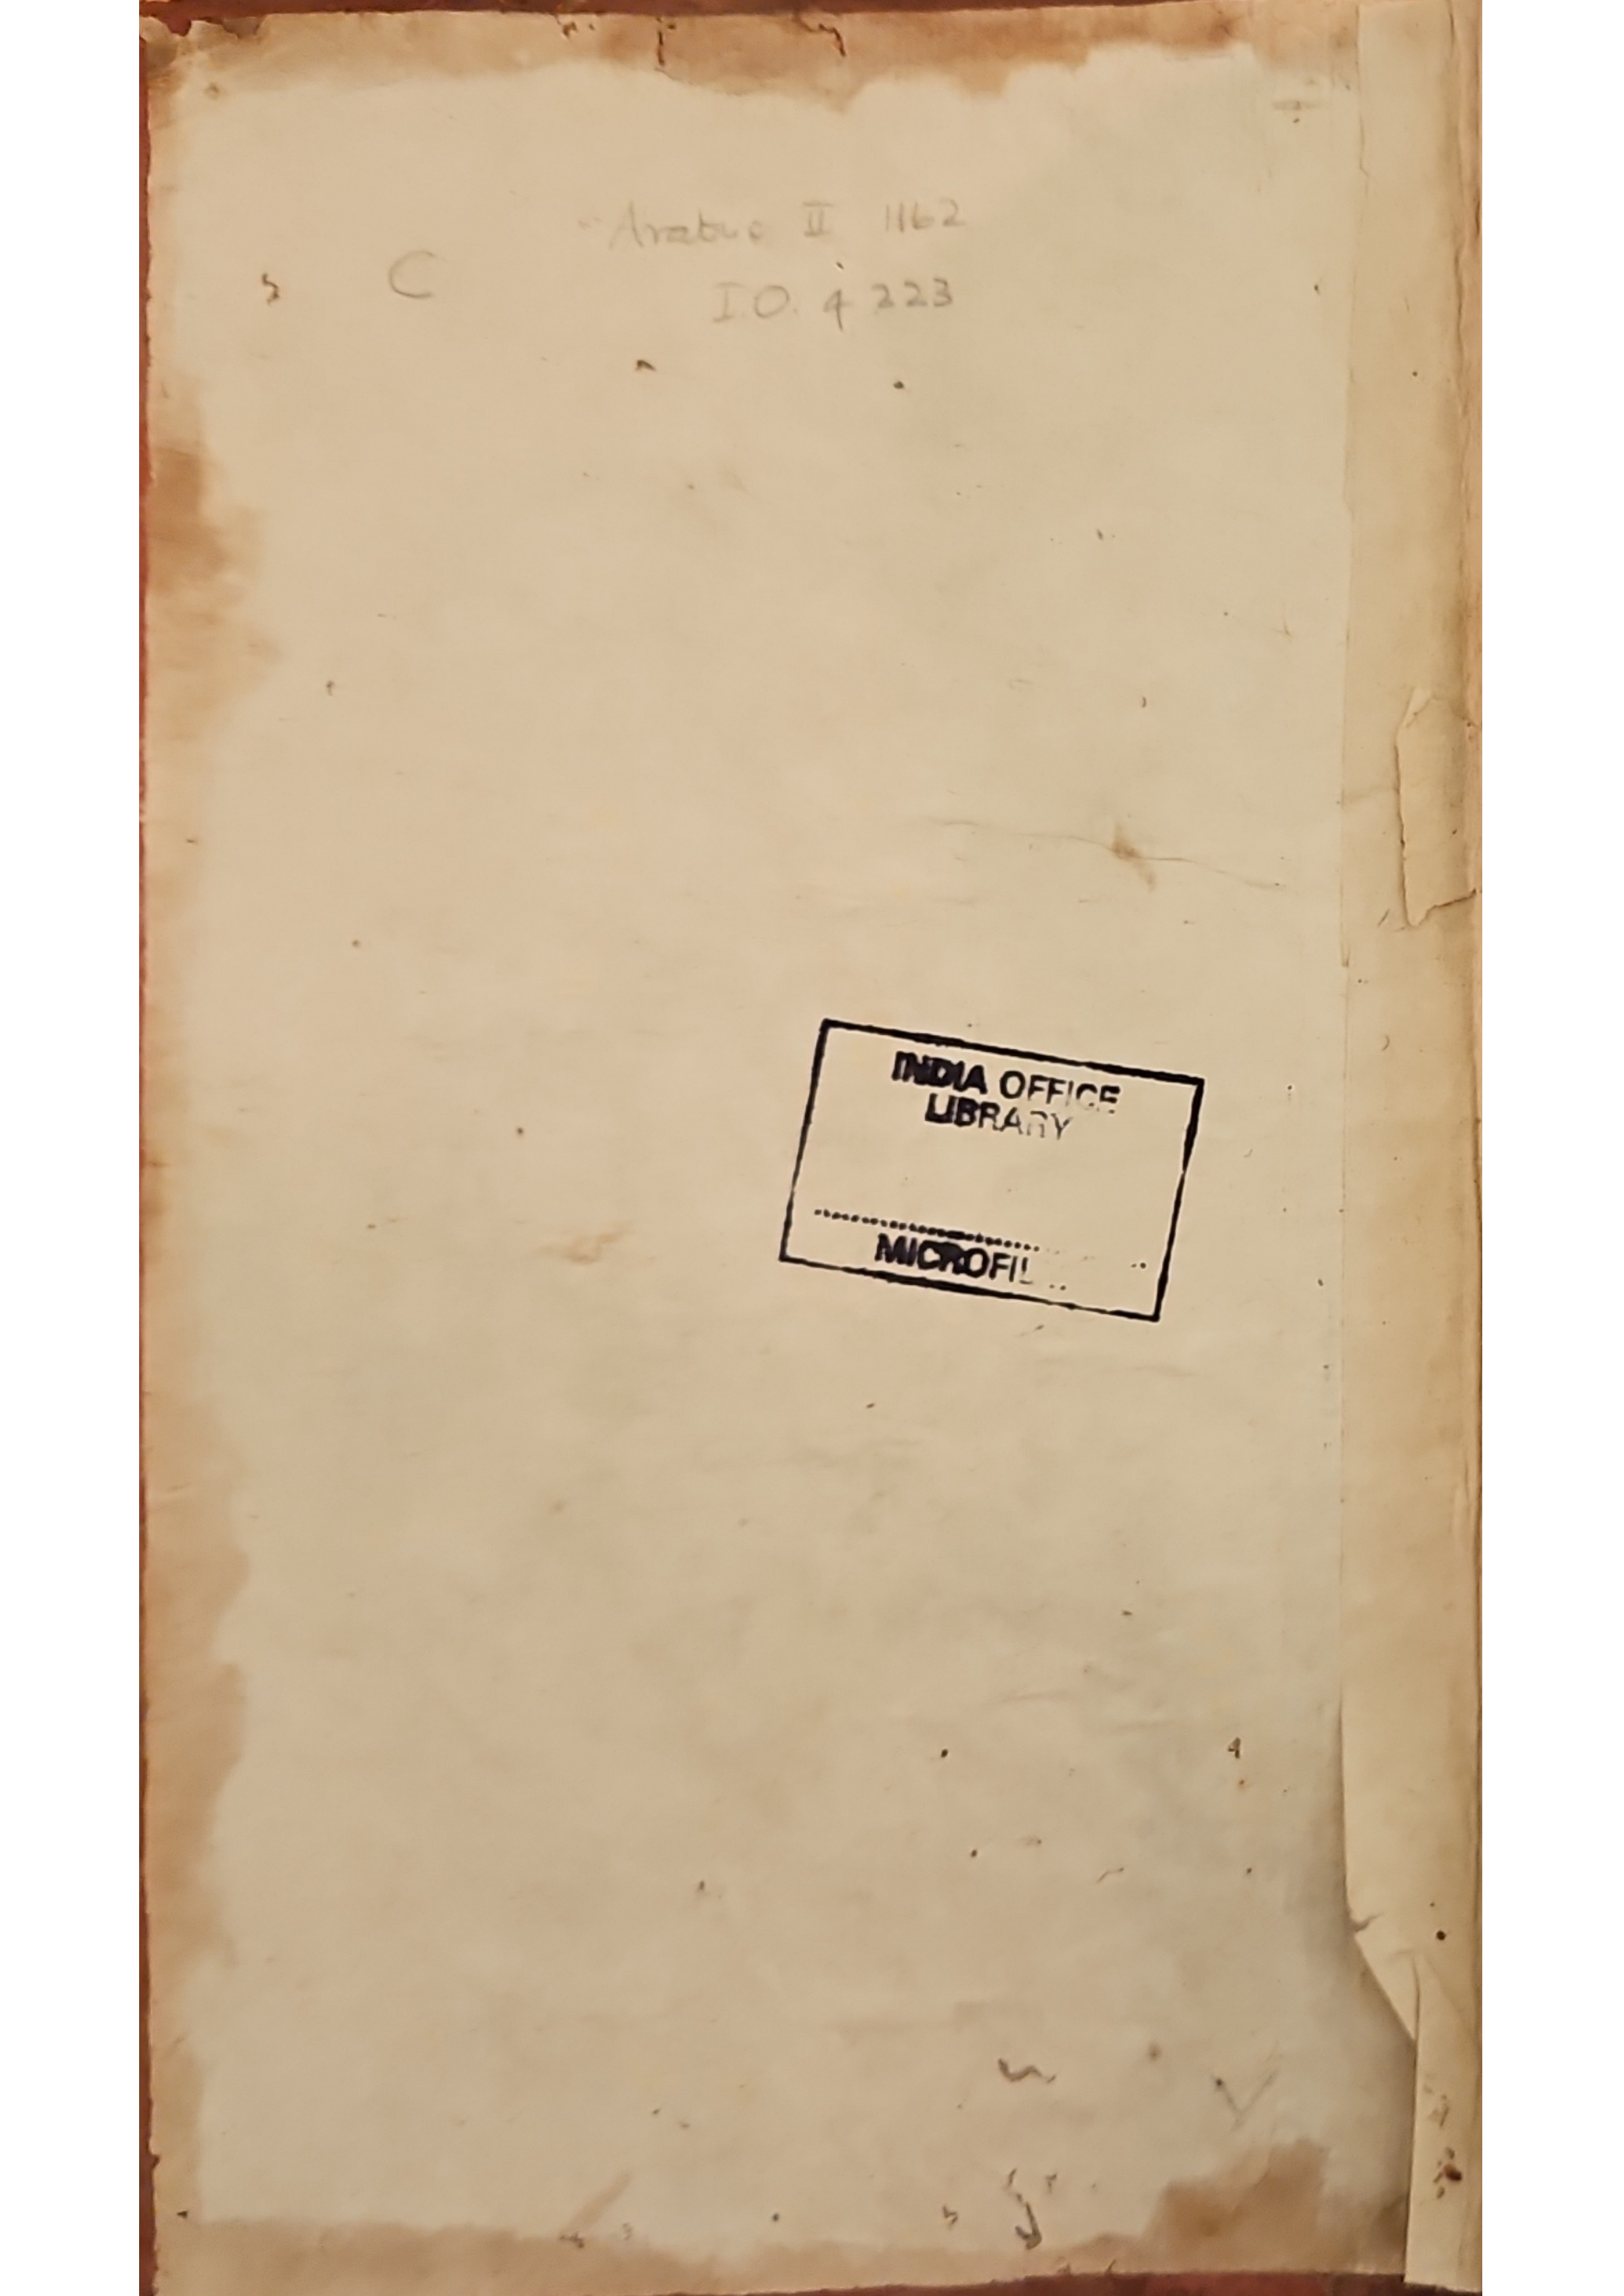 Arabic II 1162
C
I.O. 4223
INDIA OFFICE
LIBRARY
MICROFIL